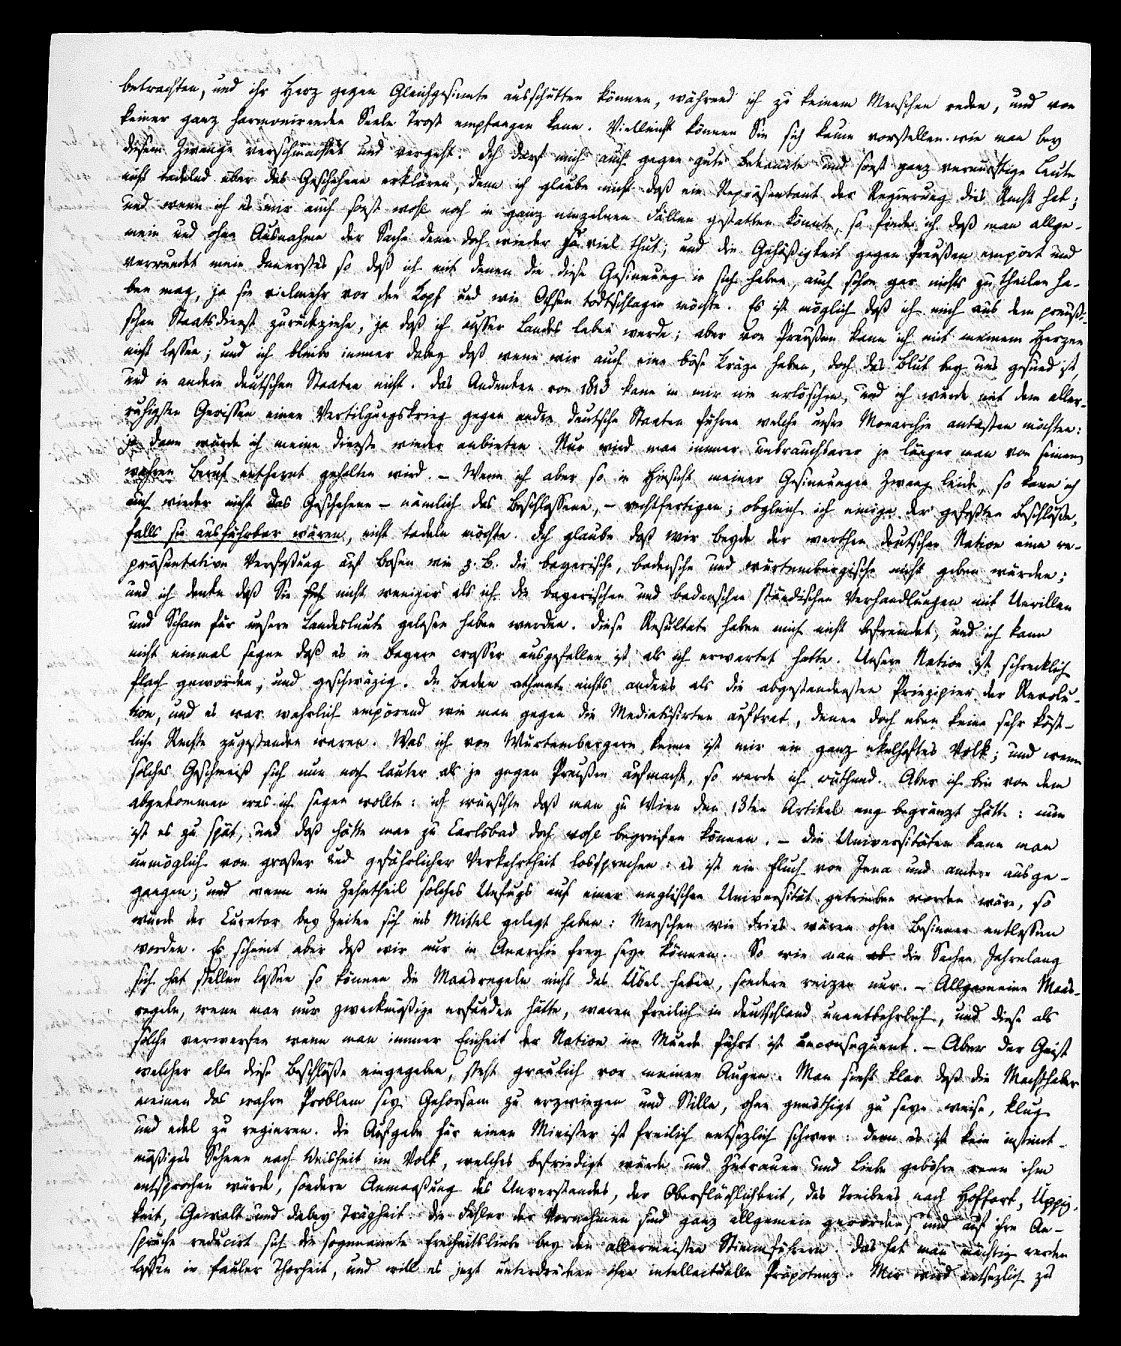 betrachten, und ihr Herz gegen Gleichgesinnte ausschütten können, während ich zu keinem Menschen reden, und von
keiner ganz harmonirenden Seele Trost empfangen kann. Vielleicht können Sie sich kaum vorstellen wie man bey
diesem Zwange verschmachtet und vergeht. Ich darf mich auch gegen gute Bekannte und sonst ganz vernünftige Leute
nicht tadelnd über das Geschehene erklären, denn ich glaube nicht daß ein Repräsentant der Regierung dies Recht hat;
und wenn ich es mir auch sonst wohl noch in ganz einzelnen Fällen gestatten könnte, so finde ich daß man allge-
mein und ohne Ausnahme der Sache denn doch wieder zu viel thut; und die Gehäßigkeit gegen Preußen empört und
verwundet mein Innerstes so daß ich mit denen die diese Gesinnung in sich haben, auch schon gar nichts zu theilen ha-
ben mag, ja sie vielmehr vor den Kopf und wie Ochsen todtschlagen möchte. Es ist möglich daß ich mich aus dem preußi-
schen Staatsdienst zurückziehe, ja daß ich ausser Landes leben werde; aber von Preußen kann ich mit meinem Herzen
nicht lassen; und ich bleibe immer dabey daß wenn wir auch eine böse Kräze haben, doch das Blut bey uns gesund ist,
und in andern deutschen Staaten nicht. Das Andenken von 1813 kann in mir nie erlöschen, und ich würde mit dem aller-
ruhigsten Gewissen einen Vertilgungskrieg gegen andre deutsche Staaten führen welche unsre Monarchie antasten möchten:
ja dann würde ich meine Dienste wieder anbieten. Nur wird man immer unbrauchbarer je länger man von seinem
wahren Beruf entfernt gehalten wird. – Wenn ich aber so in Hinsicht meiner Gesinnungen Zwang leide, so kann ich
auch wieder nicht das Geschehene – nämlich das Beschlossene, – rechtfertigen; obgleich ich einige der gefaßten Beschlüße,
falls sie ausführbar wären, nicht tadeln möchte. Ich glaube daß wir beyde der werthen deutschen Nation eine re-
präsentative Verfaßung auf Basen wie z. B. die bayerische, badensche und würtembergische nicht geben würden;
und ich denke daß Sie nicht weniger als ich die bayerischen und badenschen ständischen Verhandlungen mit Unwillen
und Scham für unsere Landesleute gelesen haben werden. Diese Resultate haben mich nicht befremdet, und ich kann
nicht einmal sagen daß es in Bayern crasser ausgefallen ist als ich erwartet hatte. Unsere Nation ist schrecklich
flach geworden, und geschwäzig. In Baden athmete nichts anders als die abgestandensten Prinzipien der Revolu-
tion, und es war wahrlich empörend wie man gegen die Mediatisirten auftrat, denen doch eben keine sehr köst-
liche Rechte zugestanden waren. Was ich von Würtembergern kenne ist mir ein ganz ekelhaftes Volk; und wenn
solches Geschmeiß sich nun noch lauter als je gegen Preußen aufmacht, so werde ich wüthend. Aber ich bin von dem
abgekommen was ich sagen wollte: ich wünschte daß man zu Wien den 13ten Artikel eng begränzt hätte: nun
ist es zu spät, und daß hätte man zu Carlsbad doch wohl begreifen können. – Die Universitäten kann man
unmöglich von großer und gefährlicher Verkehrtheit lossprechen: es ist ein Fluch von Jena und andere ausge-
gangen; und wenn ein Zehntheil solches Unfugs auf einer englischen Universität getrieben worden wäre, so
würde der Curator bey Zeiten sich ins Mittel gelegt haben: Menschen wie Fries wären ohne Besinnen entlassen
worden. Es scheint aber daß wir nur in Anarchie frey seyn können. So wie man die Sachen Jahrelang
sich hat stellen lassen so können die Maasregeln nicht das Übel heben, sondern reizen nur. – Allgemeine Maas-
regeln, wenn man nur zweckmäßige erfunden hätte, waren freilich in Deutschland unentbehrlich, und diese als
solche verwerfen wenn man immer Einheit der Nation im Munde führt ist inconsequent. – Aber der Geist
welcher alle diese Beschlüße eingegeben, steht graulich vor meinen Augen. Man sieht klar daß die Machthaber
meinen das wahre Problem sey Gehorsam zu erzwingen und Stille, ohne genöthigt zu seyn weise, klug
und edel zu regieren. Die Aufgabe für einen Minister ist freilich entsezlich schwer: denn es ist kein instinct-
mäßiges Sehnen nach Weisheit im Volk, welches befriedigt würde und Zutrauen und Liebe gebähre wenn ihm
entsprochen würde, sondern Anmaaßung des Unverstandes, der Oberflächlichkeit, des Treibens nach Hoffart, Üppig-
keit, Gewalt und dabey Trägheit: die Fehler der Vornehmen sind ganz allgemein geworden und auf ihre An-
sprüche reducirt sich die sogenannte Freiheitsliebe bey den allermeisten Stimmführern. Das hat man mächtig werden
lassen in fauler Thorheit, und will es jezt unterdrücken ohne intellectuelle Präpotenz. Mir wird entsezlich zu